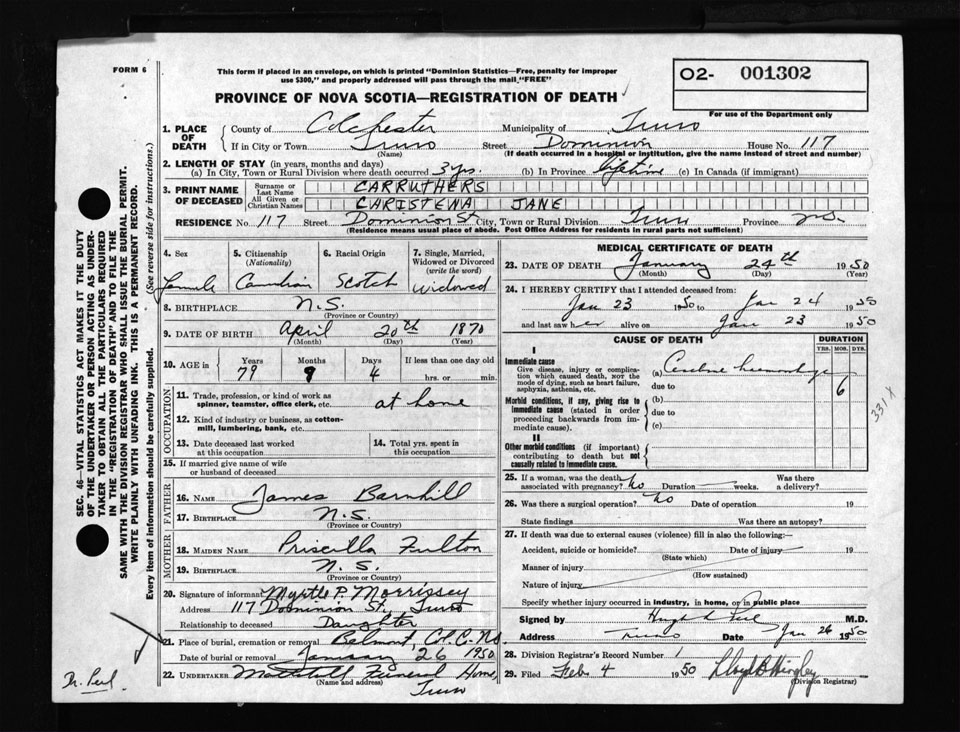 FORM 6
This form if placed in an envelope, on which is printed "Dominion Statistics—Free, penalty for improper
use $300," and properly addressed will pass through the mail "FREE"
O2- 001302
PROVINCE OF NOVA SCOTIA—REGISTRATION OF DEATH
For use of the Department only
1. PLACE OF DEATH
County of Colchester Municipality of Truro
If in City or Town Truro Street Dominion House No. 117
(Name) (If death occurred in a hospital or institution, give the name instead of street and number)
2. LENGTH OF STAY (in years, months and days)
(a) In City, Town or Rural Division where death occurred 3 yrs. (b) In Province lifetime (c) In Canada (if immigrant)
3. PRINT NAME OF DECEASED
Surname or Last Name CARRUTHERS
All Given or Christian Names CHRISTENA JANE
RESIDENCE No. 117 Street Dominion St City, Town or Rural Division Truro Province N.S.
(Residence means usual place of abode. Post Office Address for residents in rural parts not sufficient)
4. Sex Female
5. Citizenship (Nationality) Canadian
6. Racial Origin Scotch
7. Single, Married, Widowed or Divorced (write the word) Widowed
8. BIRTHPLACE N.S.
(Province or Country)
9. DATE OF BIRTH April 20th 1870
(Month) (Day) (Year)
10. AGE in Years Months Days If less than one day old
79 9 4 hrs. or min.
OCCUPATION
11. Trade, profession, or kind of work as spinner, teamster, office clerk, etc. at home
12. Kind of industry or business, as cotton-mill, lumbering, bank, etc.
13. Date deceased last worked at this occupation
14. Total yrs. spent in this occupation
15. If married give name of wife or husband of deceased
FATHER
16. NAME James Barnhill
17. BIRTHPLACE N.S.
(Province or Country)
MOTHER
18. MAIDEN NAME Priscilla Fulton
19. BIRTHPLACE N.S.
(Province or Country)
20. Signature of informant Myrtle P. Morrissey
Address 117 Dominion St, Truro
Relationship to deceased Daughter
21. Place of burial, cremation or removal Belmont, Col. C. N.S.
Date of burial or removal January 26 1950
22. UNDERTAKER Funeral Home,
(Name and address) Truro
MEDICAL CERTIFICATE OF DEATH
23. DATE OF DEATH January 24th 1950
(Month) (Day) (Year)
24. I HEREBY CERTIFY that I attended deceased from:
Jan 23 1950 to Jan 24 1950
and last saw her alive on Jan 23 1950
CAUSE OF DEATH DURATION
YRS. MOS. DYS.
I
Immediate cause
Give disease, injury or complication which caused death, NOT the mode of dying, such as heart failure, asphyxia, asthenia, etc.
(a) Cerebral haemorrhage 6
due to
Morbid conditions, if any, giving rise to immediate cause (stated in order proceeding backwards from immediate cause).
(b)
due to
(c)
331X
II
Other morbid conditions (if important) contributing to death but not causally related to immediate cause.
25. If a woman, was the death associated with pregnancy? No Duration weeks. Was there a delivery?
26. Was there a surgical operation? No Date of operation 19
State findings Was there an autopsy?
27. If death was due to external causes (violence) fill in also the following:—
Accident, suicide or homicide? Date of injury 19
(State which)
Manner of injury
(How sustained)
Nature of injury
Specify whether injury occurred in industry, in home, or in public place
Signed by M.D.
Address Truro Date Jan 26 1950
28. Division Registrar's Record Number 1
29. Filed Feb 4 1950
(Division Registrar)
SEC. 46—VITAL STATISTICS ACT MAKES IT THE DUTY
OF THE UNDERTAKER OR PERSON ACTING AS UNDER-
TAKER TO OBTAIN ALL THE PARTICULARS REQUIRED
IN THE "REGISTRATION OF DEATH" AND TO FILE THE
SAME WITH THE DIVISION REGISTRAR WHO SHALL ISSUE THE BURIAL PERMIT.
WRITE PLAINLY WITH UNFADING INK. THIS IS A PERMANENT RECORD.
Every item of information should be carefully supplied. (See reverse side for instructions.)